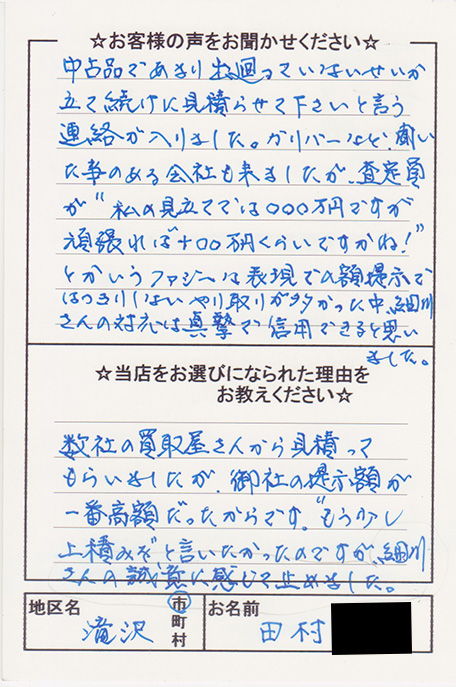 ☆お客様の声をお聞かせください☆
中古品であまり出廻っていないせいか
立て続けに見積らせて下さいと言う
連絡が入りました。ガリバーなど、聞い
た事のある会社も来ましたが、査定員
が“私の見立てでは〇〇〇万円ですが
頑張れば+〇〇万円くらいですかね!”
とかいうファジーな表現での額提示で
はっきりしないやり取りが多かった中、細川
さんの対応は真摯で信用できると思い
ました。
☆当店をお選びになられた理由を
お教えください☆
数社の買取屋さんから見積って
もらいましたが、御社の提示額が
一番高額だったからです。“もう少し
上積みを”と言いたかったのですが、細川
さんの誠意に感じて止めました。
地区名 滝沢 市町村 お名前 田村